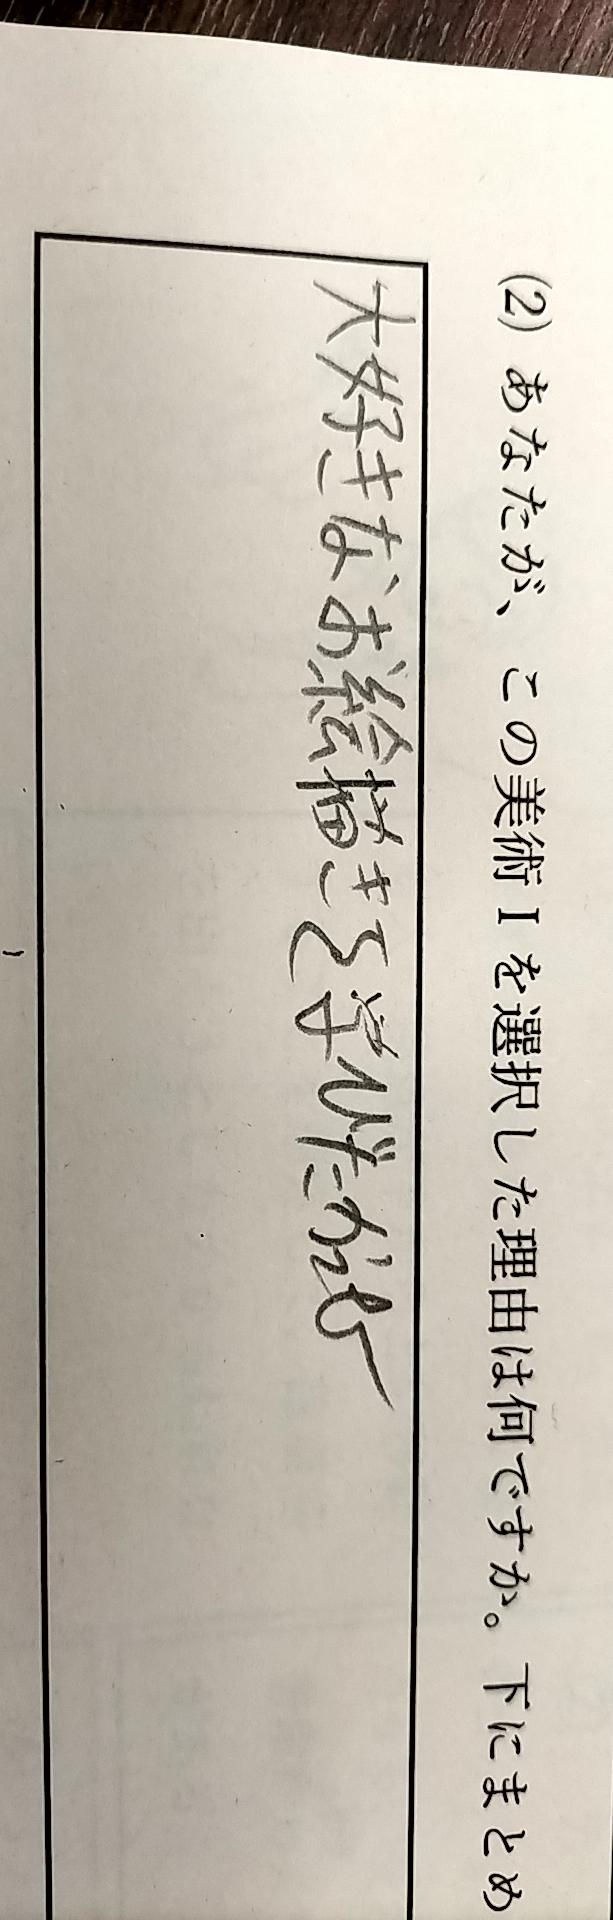 (2) あなたが、この美術Iを選択した理由は何ですか。下にまとめ
大好きなお絵描きを学びたから